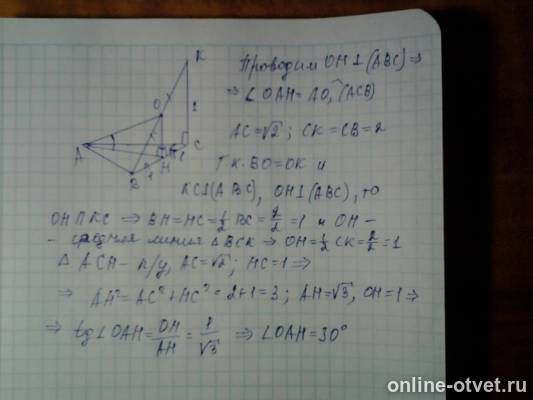 K
O
2
A
C
B
H
1
Проводим OH⊥(ABC) ⇒
⇒ ∠OAH = AO,^(ACB)
AC=√2 ; CK=CB=2
Т.к. BO=OK и
KC⊥(ABC), OH⊥(ABC), то
OH ∥ KC ⇒ BH=HC=½ BC = 2/2 =1 и OH –
– средняя линия △BCK ⇒ OH=½ CK=2/2=1
△ ACH – п/у, AC=√2 ; HC=1 ⇒
⇒ AH²=AC²+HC²=2+1=3 ; AH=√3, OH=1 ⇒
⇒ tg∠OAH=OH/AH=1/√3 ⇒ ∠OAH=30°
online-otvet.ru